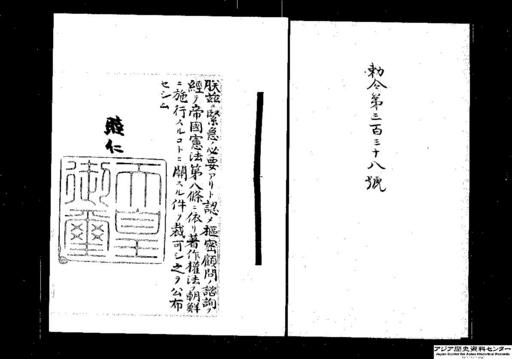 勅令第三百三十八號
朕茲ニ緊急ノ必要アリト認メ樞密顧問ノ諮詢ヲ
經テ帝國憲法第八條ニ依リ著作權法ヲ朝鮮
ニ施行スルコトニ關スル件ヲ裁可シ之ヲ公布
セシム
睦仁
天皇
御璽
アジア歴史資料センター
Japan Center for Asian Historical Records